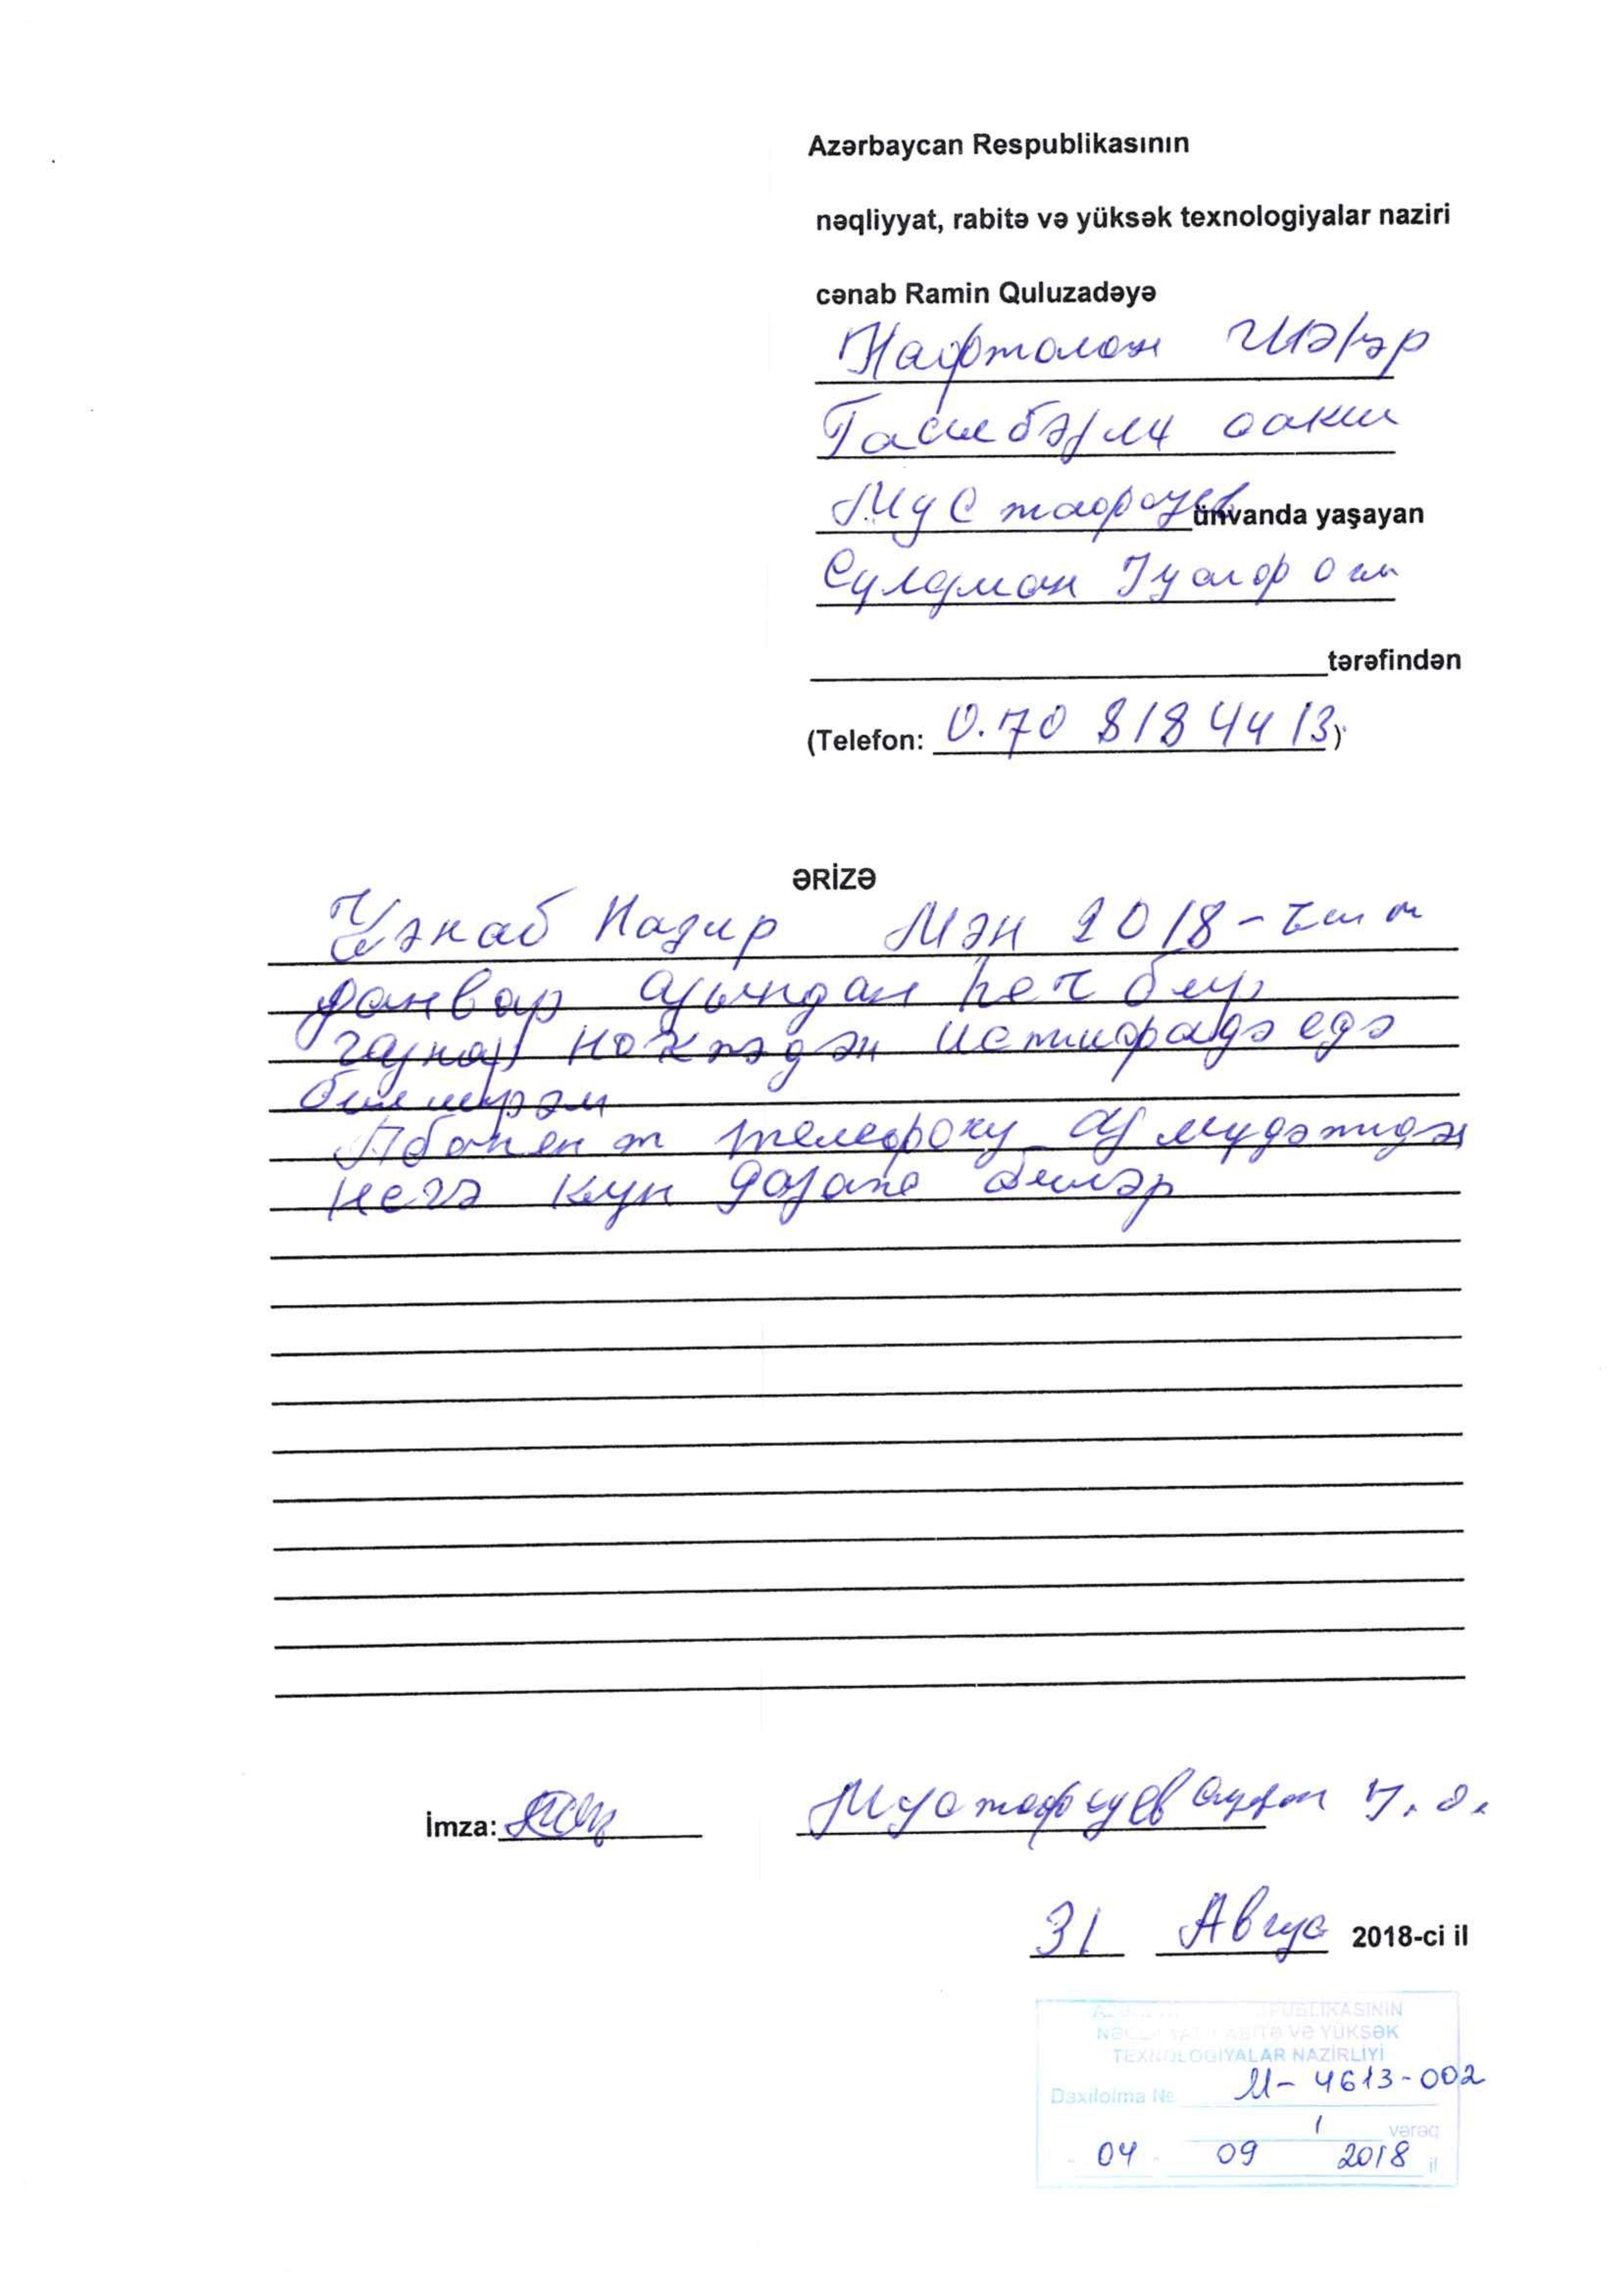 Azərbaycan Respublikasının
nəqliyyat, rabitə və yüksək texnologiyalar naziri
cənab Ramin Quluzadəyə
Нафталан Шәһәр
Гашебәјли сакин
Мустафајев ünvanda yaşayan
Сулејман
tərəfindən
(Telefon: 0.70 818 44 13)
ƏRİZƏ
Ҹәнаб Назир Мән 2018-
јанвар ајындан һеч бир
гајнар нөхтәдән истифадә едә
билмирәм
Абонент телефону ај мүдәтидә
нечә күн дајана биләр
İmza: Мустафајев
31 Авгус 2018-ci il
PUBLİKASININ
VƏ YÜKSƏK
TEXNOLOGİYALAR NAZİRLİYİ
Daxilolma № М-4613-002
1 vərəq
04 09 2018 il